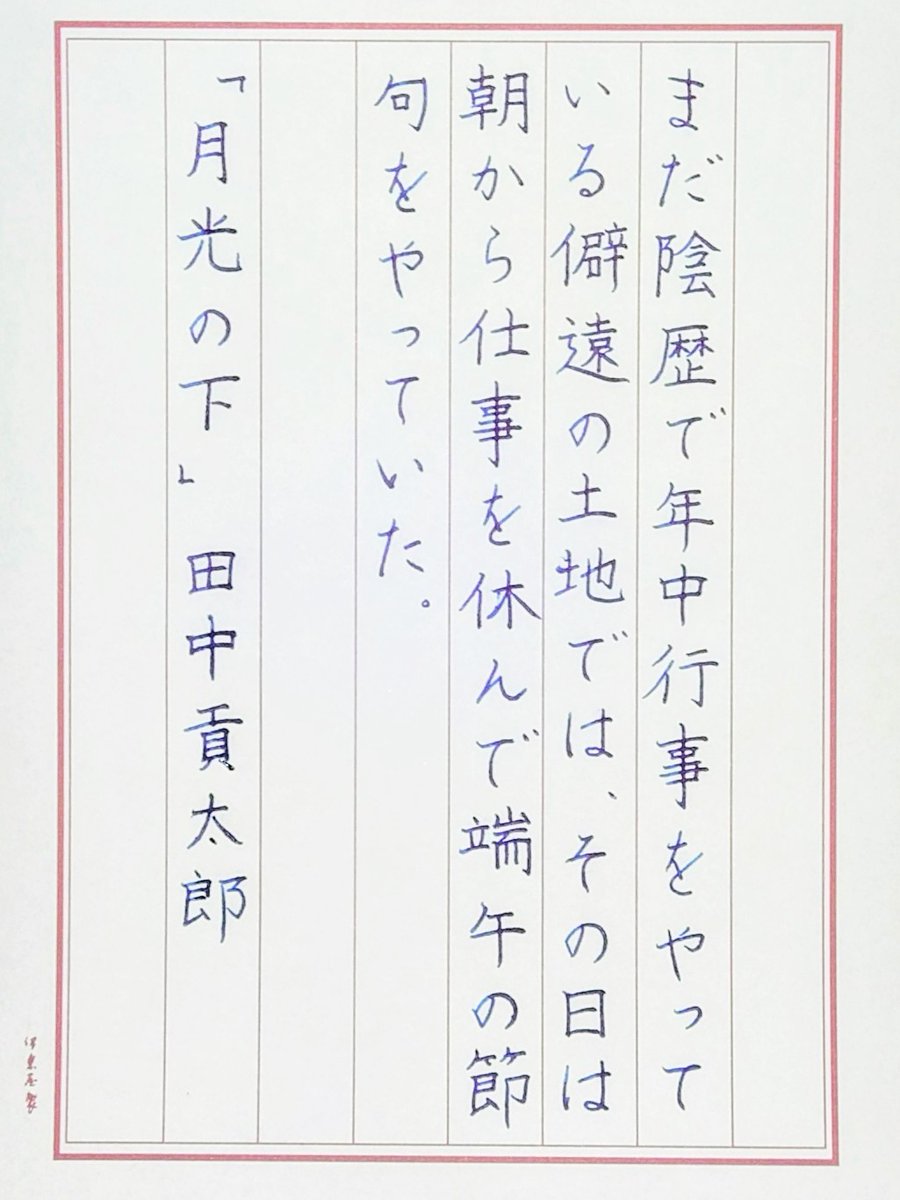 まだ陰歴で年中行事をやって
いる僻遠の土地では、その日は
朝から仕事を休んで端午の節
句をやっていた。
「月光の下」 田中貢太郎
伊東屋製